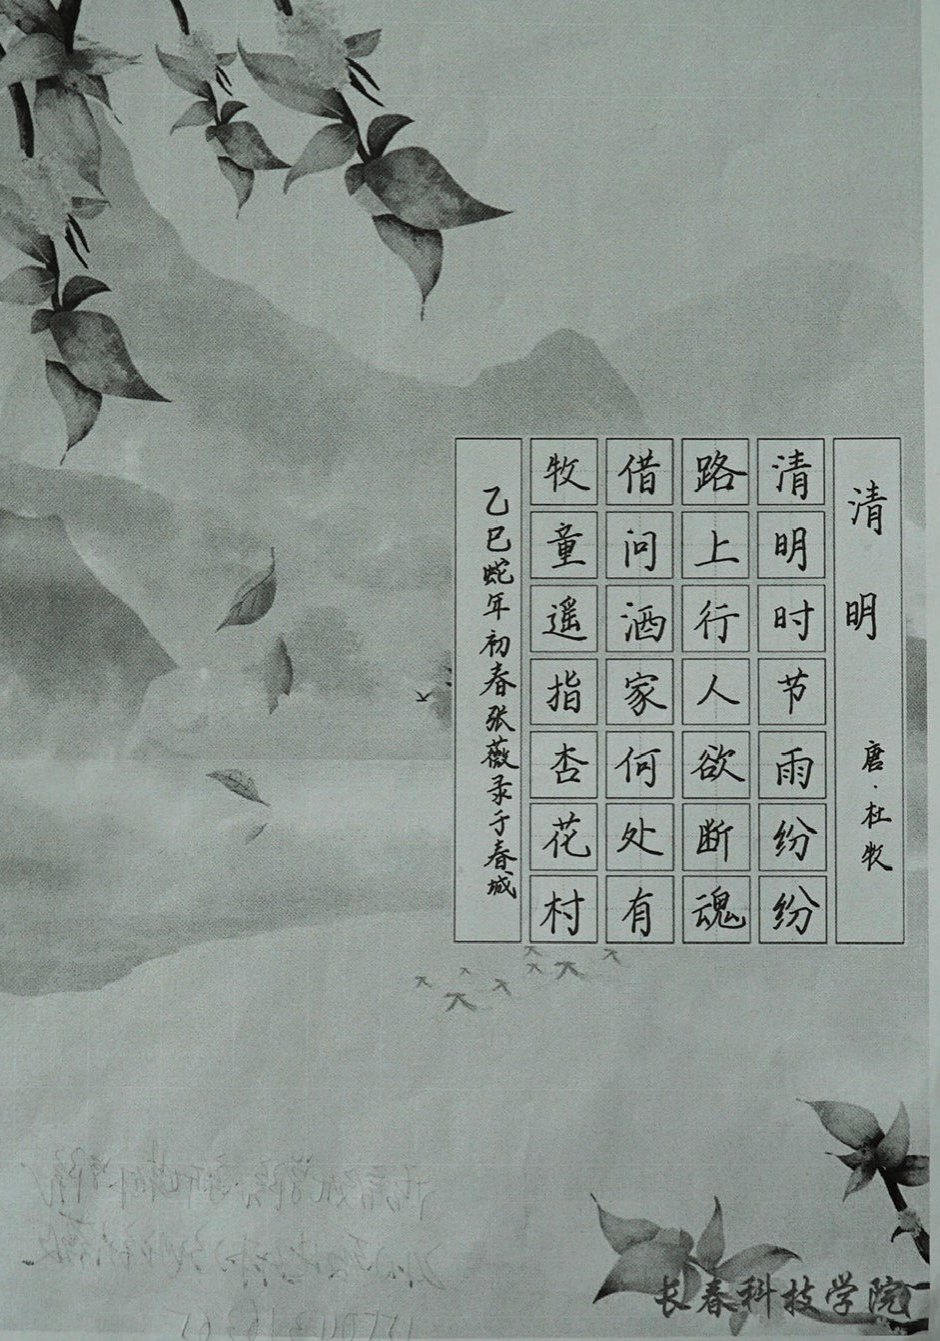 清明
唐·杜牧
清明时节雨纷纷
路上行人欲断魂
借问酒家何处有
牧童遥指杏花村
乙巳蛇年初春张薇录于春城
长春科技学院